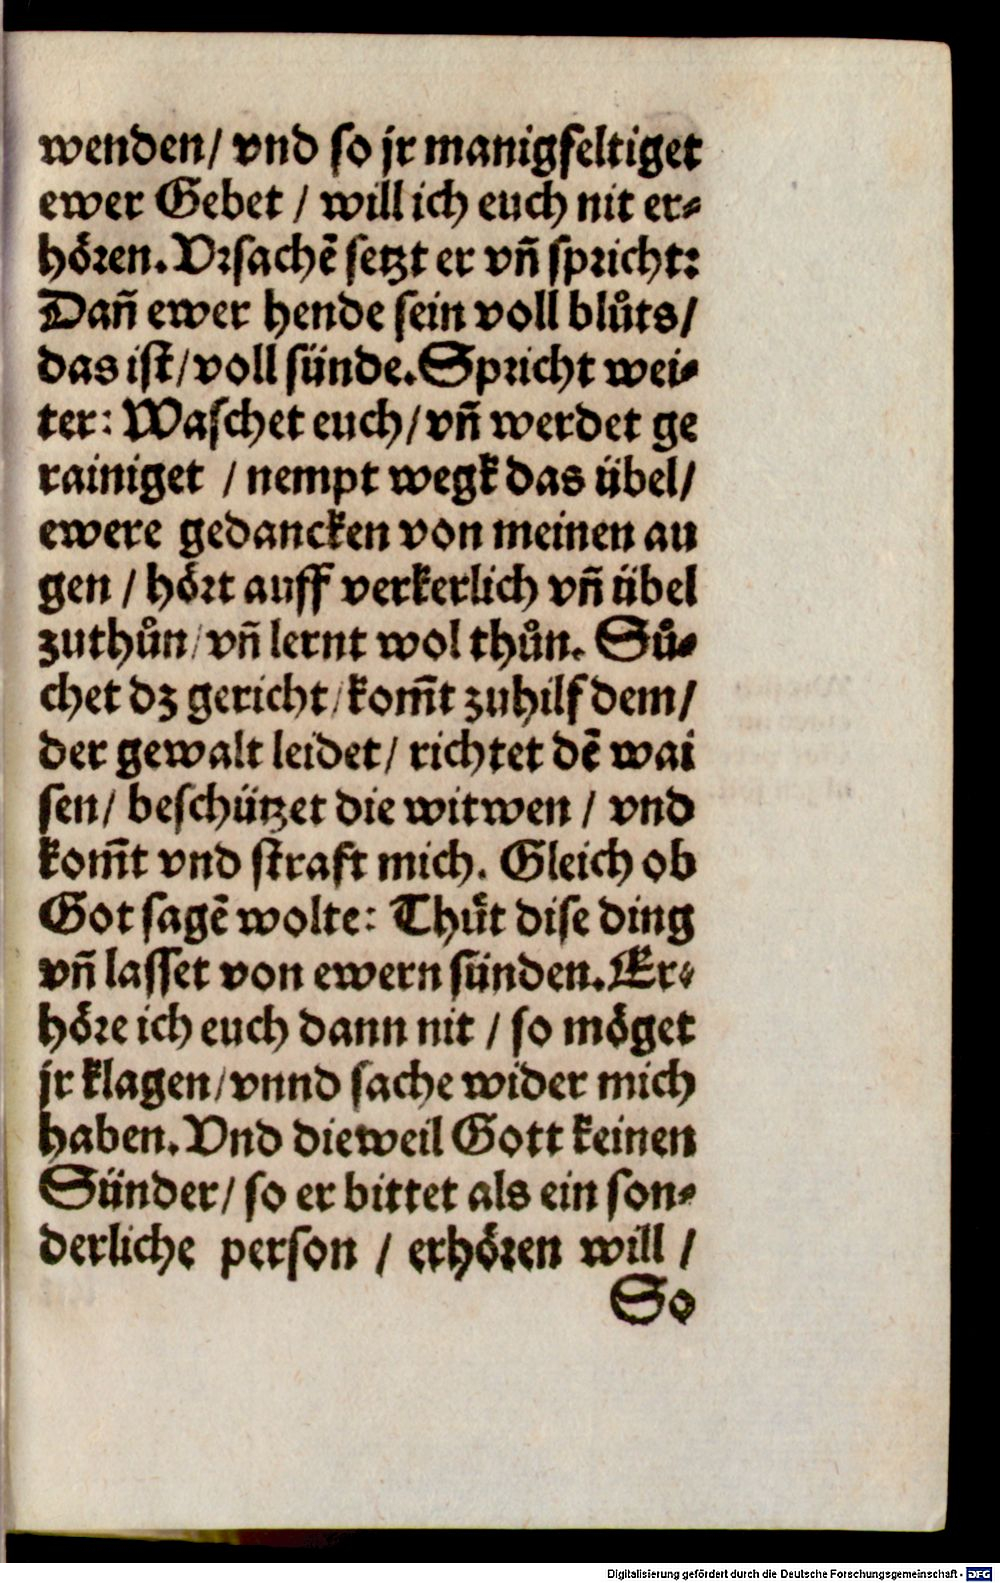 wenden/ vnd so jr manigfeltiget
ewer Gebet / will ich euch nit er⸗
hoͤren. Vrsachẽ setzt er vñ spricht:
Dañ ewer hende sein voll bluͦts/
das ist/ voll sünde. Spricht wei⸗
ter: Waschet euch/ vñ werdet ge
rainiget / nempt wegk das übel/
ewere gedancken von meinen au
gen / hoͤrt auff verkerlich vñ übel
zuthuͦn/ vñ lernt wol thuͦn. Suͦ⸗
chet dz gericht/ kom̃t zuhilf dem/
der gewalt leidet/ richtet dẽ wai
sen/ beschützet die witwen / vnd
kom̃t vnd straft mich. Gleich ob
Got sagẽ wolte: Thuͤt dise ding
vñ lasset von ewern sünden. Er⸗
hoͤre ich euch dann nit / so moͤget
jr klagen/ vnnd sache wider mich
haben. Vnd dieweil Gott keinen
Sünder/ so er bittet als ein son⸗
derliche person / erhoͤren will /
So
Digitalisierung gefördert durch die Deutsche Forschungsgemeinschaft - DFG